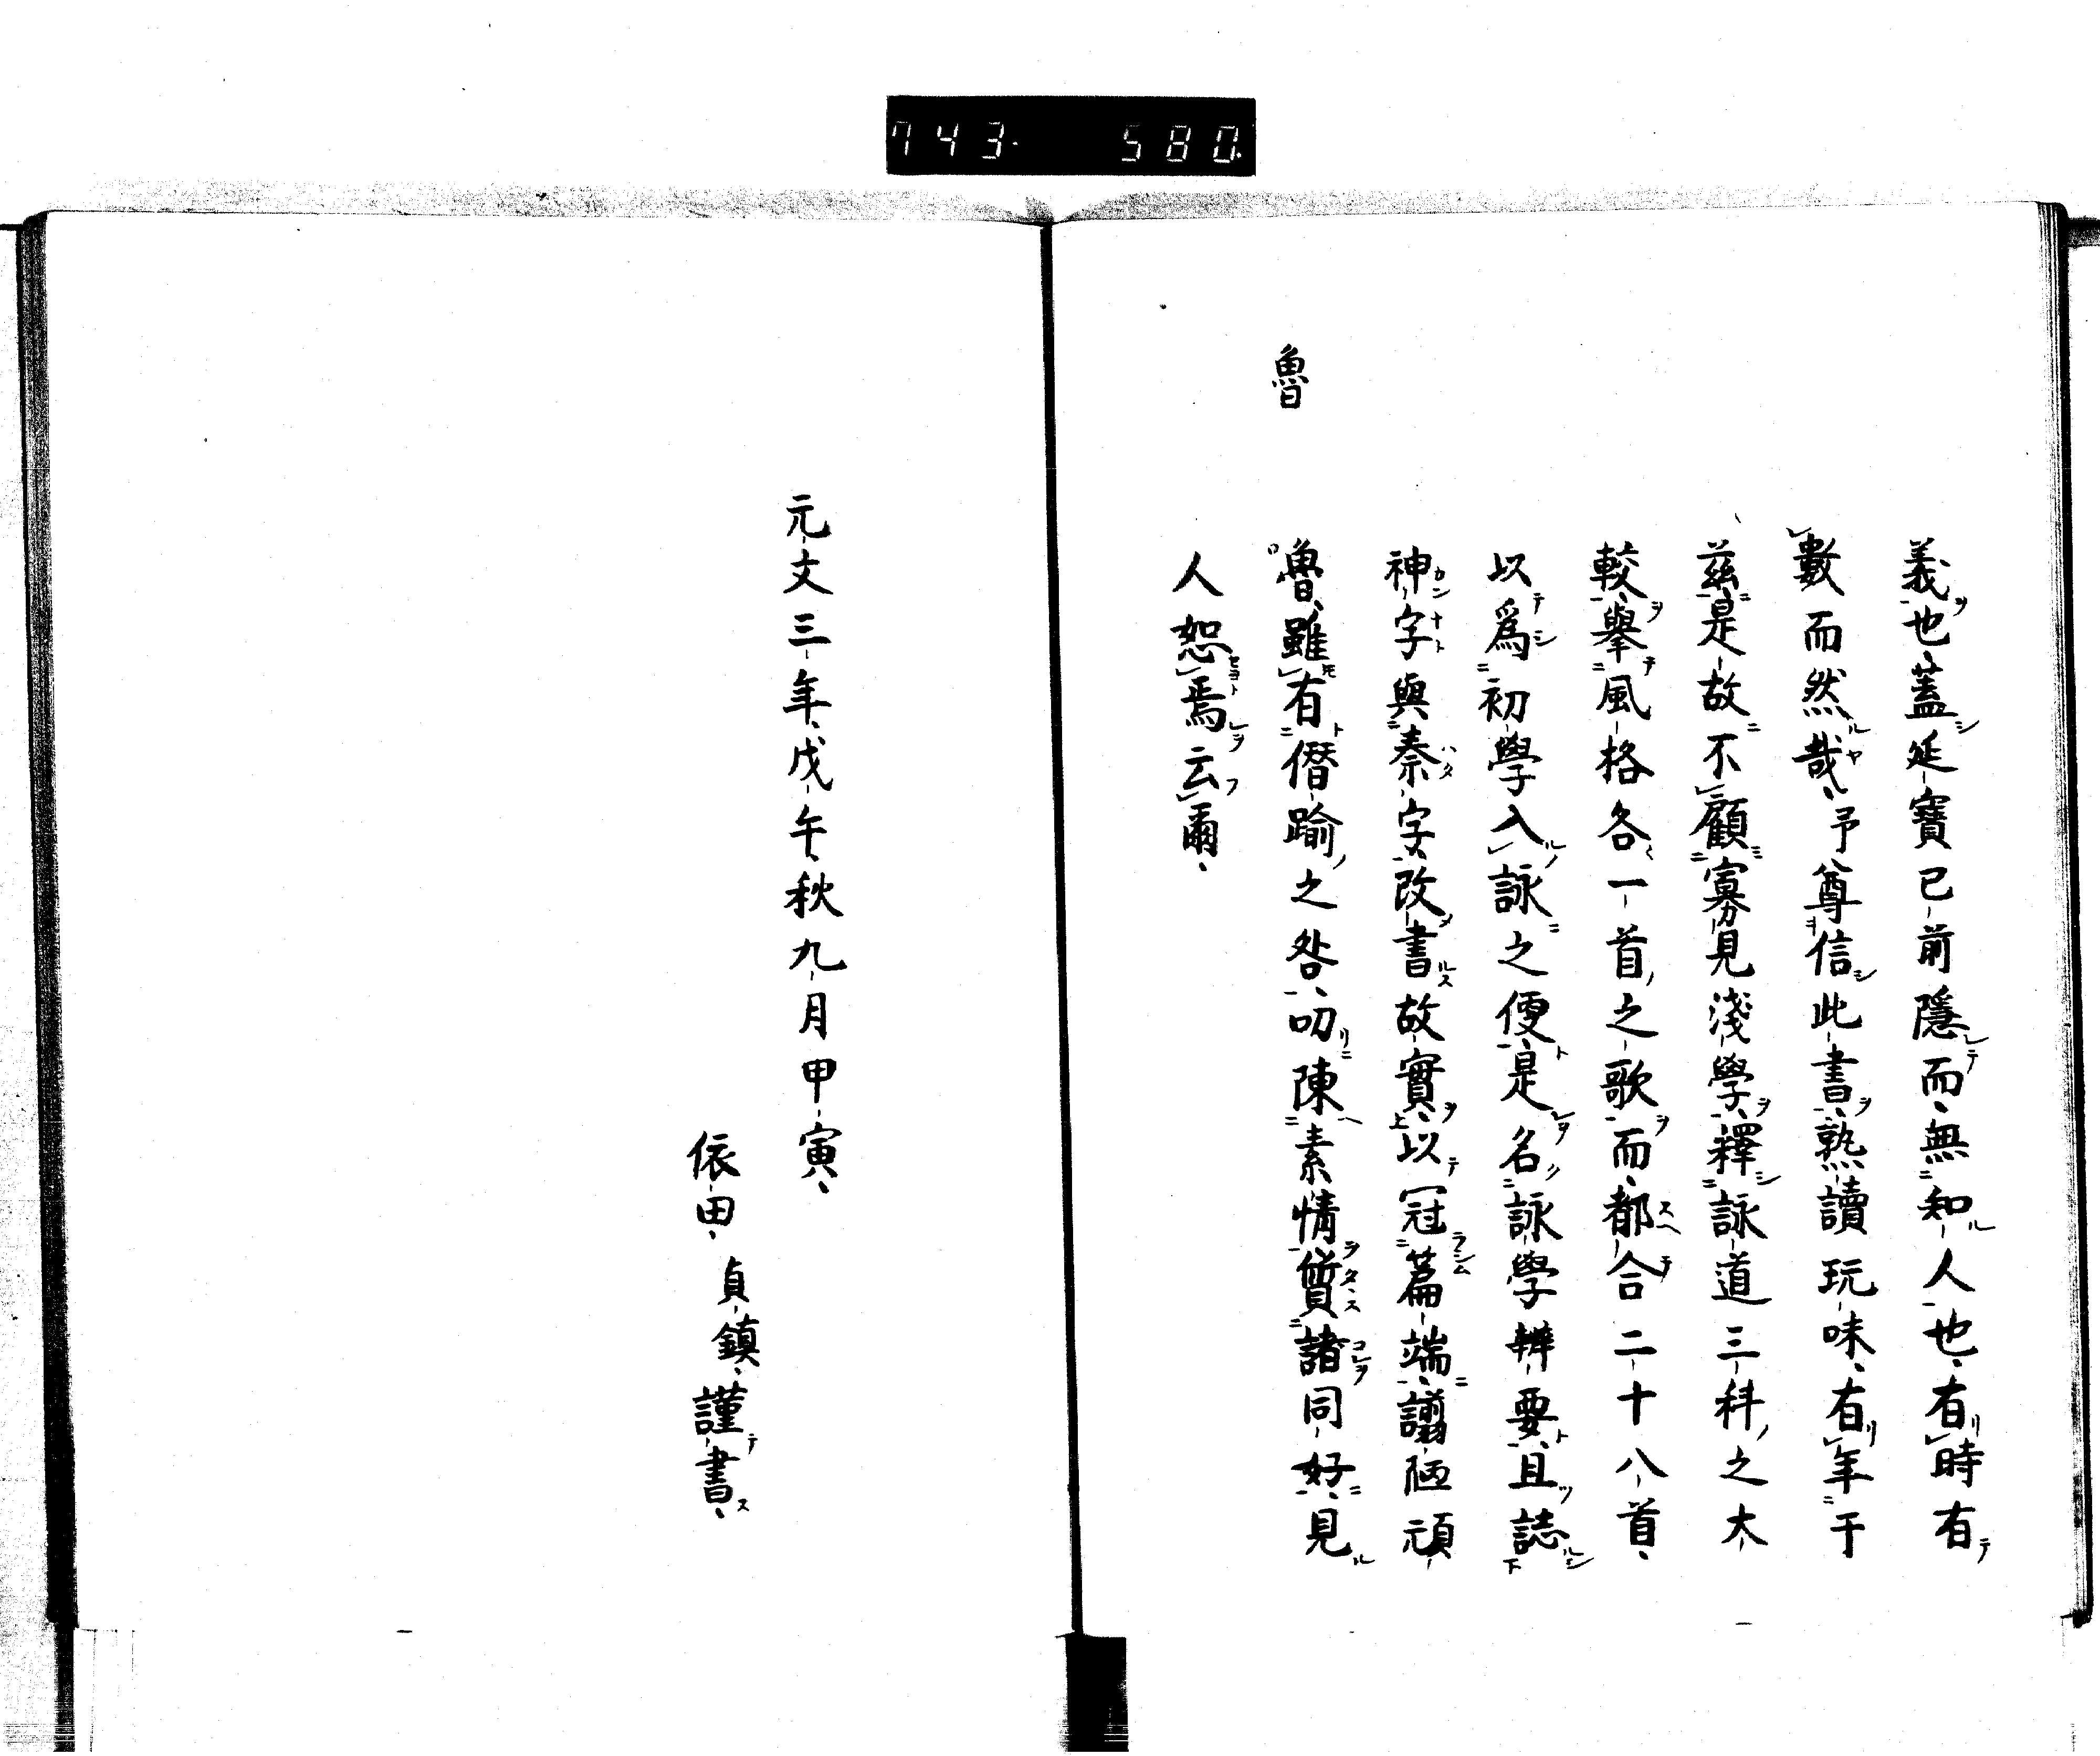 743 580
義也、蓋延寶已前隱而、無知人也、有時有
數而然哉、予尊信此書、熟讀玩味、有年于
茲、是故不顧寡見淺學、釋詠道三科之大
較、擧風格各一首之歌而、都合二十八首、
以爲初學入詠之便、是名詠學辨要、且誌
神字與秦字、改書故實、以冠篇端、謭陋頑
魯、雖有僭踰之咎、叨陳素情、質諸同好、見
人恕焉云爾、
魯
元文三年、戊午、秋九月甲寅、
依田、貞鎮、謹書、